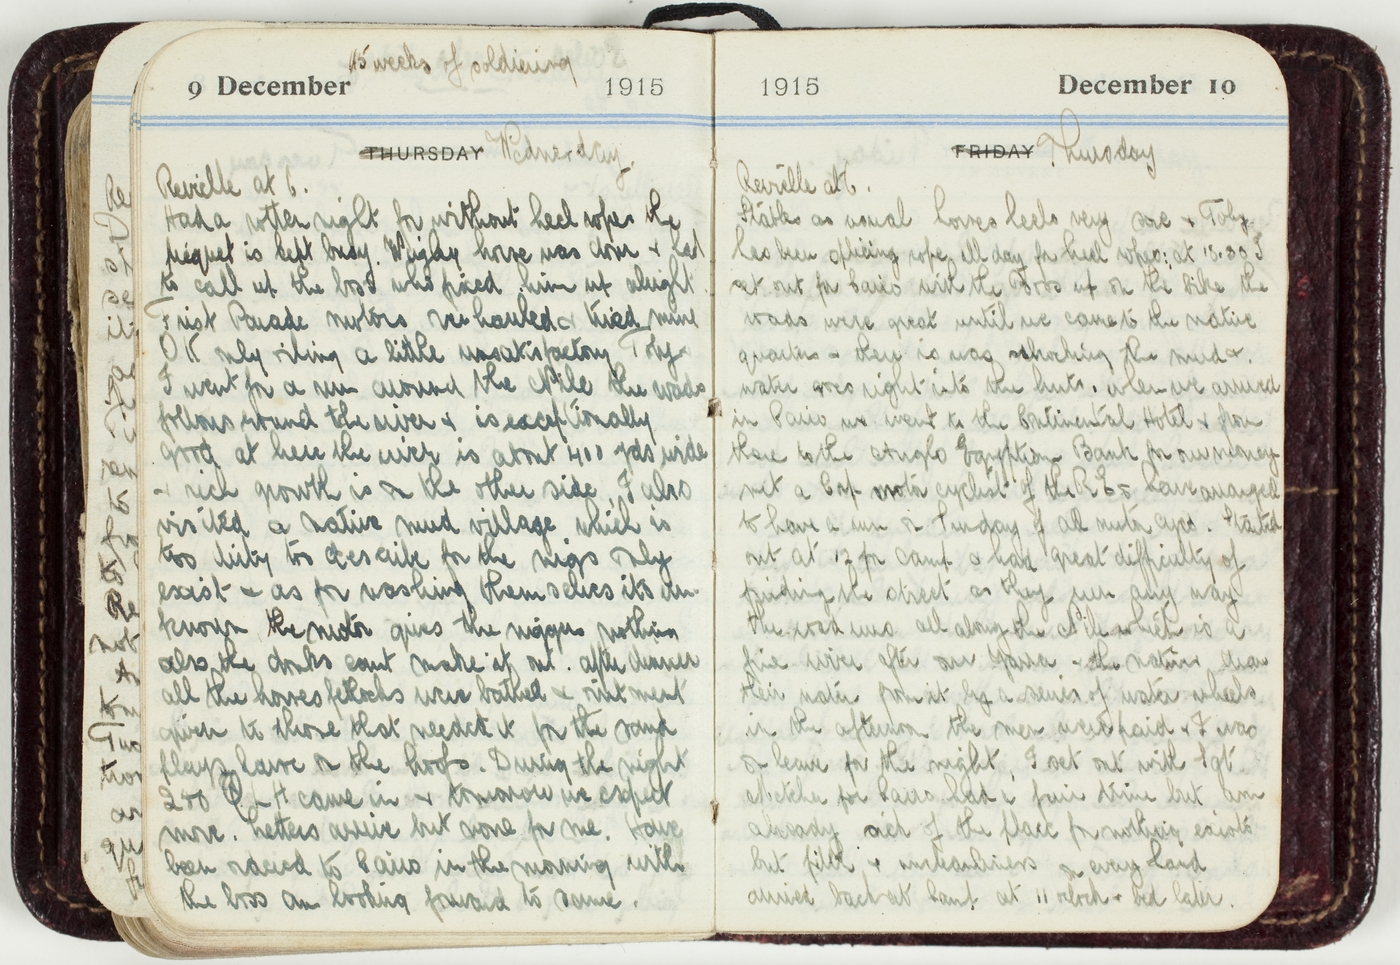 15 weeks of soldiering
9 December 1915
THURSDAY Wednesday.
Reveille at 6.
Had a rotten night for without heel ropes the
piquet is kept busy. Wrigley horse was down & had
to call up the boss who fixed him up alright.
First Parade motors overhauled & tried mine
OK only oiling a little unsatisfactory Toby &
I went for a run around the Nile the roads
follows round the river & is exceptionally
good at here the river is about 400 yds wide
& rich growth is on the other side, I also
visited a native mud village which is
too dirty to describe for the nigs only
exist & as for washing themselves its un-
known the motor gives the niggers nothin
also the donks cant make it out. after dinner
all the horses fetlocks were bathed & ointment
given to those that needed it for the sand
plays havoc on the hoofs. During the night
200 L-H came in & tomorrow we expect
more. Letters arrive but none for me. Have
been ordered to Cairo in the morning with
the boss am looking forward to same.
1915 December 10
FRIDAY Thursday
Reveille at 6.
Stables as usual horses heels very sore & Toby
has been splicing rope all day for heel ropes; at 8.30 I
set out for Cairo with the Boss up on the bike the
roads were great until we came to the native
quarters & there is was shocking the mud &
water goes right into the huts. when we arrived
in Cairo we went to the Continental Hotel & from
there to the Anglo Egyptian Bank for our money
met a Corp motor cyclist of the R.E.s have arranged
to have a run on Sunday of all motor cycs. Started
out at 12 for camp & had great difficulty of
finding the street as they run any way
the road runs all along the Nile which is a
fine river after our Yarra & the natives draw
their water from it by a series of water wheels
in the afternoon the men were paid & I was
on leave for the night, I set out with Sgt.
for Cairo had a fair time but am
already sick of the place for nothing exists
but filth & uncleanliness on every hand
arrived back at Camp at 11 oclock & bed later.